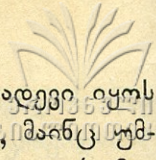 ადევი იყოს
, მაინც უმ-